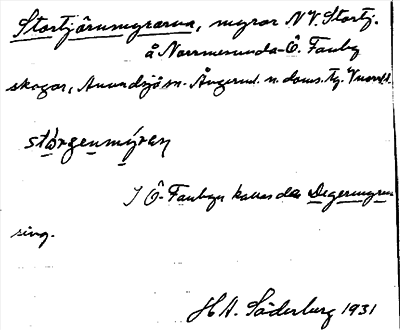 Stortjärnmyrarna, myrar N V. Stortj.
å Norrmesunda-Ö. Fanby
skogar, Anundsjö sn. Ångerml. n. doms. tg. Vnorrl.
stórgenmýran
I Ö-Fanbyn kallas den Degermyren
sing.
H A. Söderberg 1931